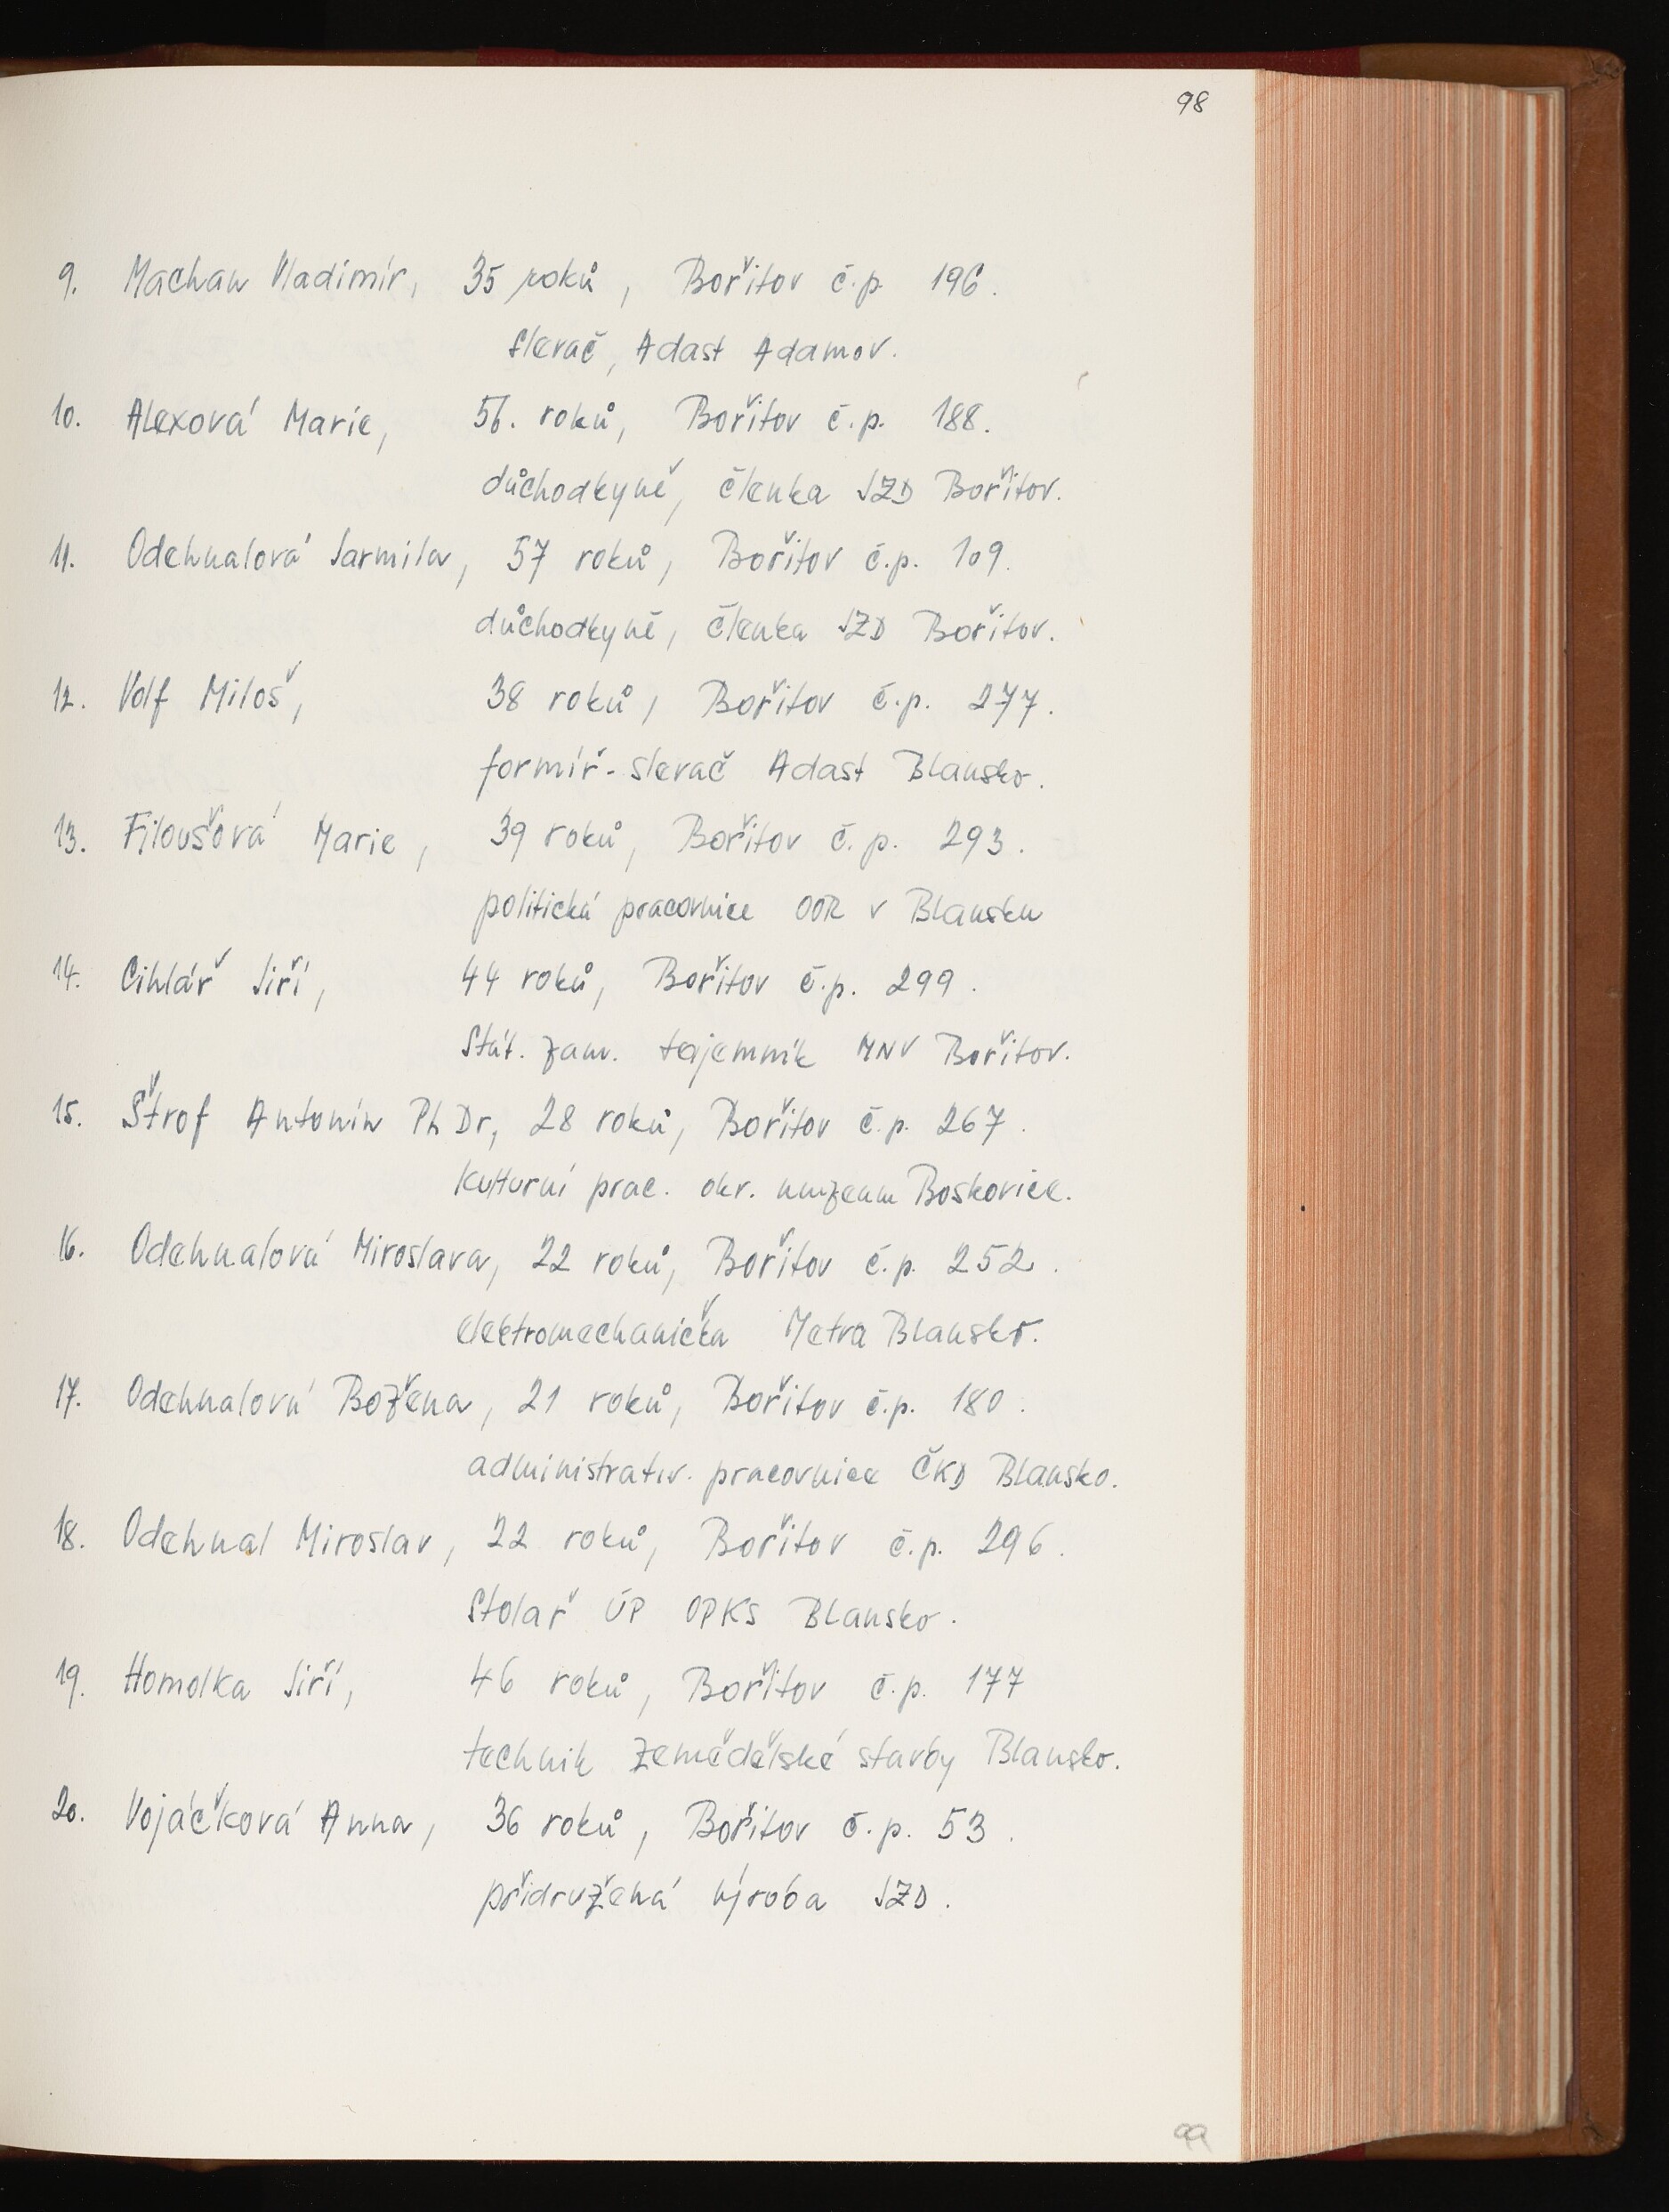 98
9. Machaň Vladimír, 35 roků, Bořitov č.p. 196.
slevač, Adast Adamov.
10. Alexová Marie, 56. roků, Bořitov č.p. 188.
důchodkyně, členka JZD Bořitov.
11. Odehnalová Jarmila, 57 roků, Bořitov č.p. 109.
důchodkyně, členka JZD Bořitov.
12. Volf Miloš, 38 roků, Bořitov č.p. 277.
formíř-slevač Adast Blansko.
13. Filoušová Marie, 39 roků, Bořitov č.p. 293.
politická pracovnice OOR v Blansku
14. Cihlář Jiří, 44 roků, Bořitov č.p. 299.
Stát. zam. tajemník MNV Bořitov.
15. Štrof Antonín PhDr, 28 roků, Bořitov č.p. 267.
kulturní prac. okr. muzeum Boskovice.
16. Odehnalová Miroslava, 22 roků, Bořitov č.p. 252.
elektromechanička Metra Blansko.
17. Odehnalová Božena, 21 roků, Bořitov č.p. 180.
administrativ. pracovnice ČKD Blansko.
18. Odehnal Miroslav, 22 roků, Bořitov č.p. 296.
Stolař ÚP OPKS Blansko.
19. Homolka Jiří, 46 roků, Bořitov č.p. 177
technik Zemědělské stavby Blansko.
20. Vojáčková Anna, 36 roků, Bořitov č.p. 53.
přidružená výroba JZD.
99